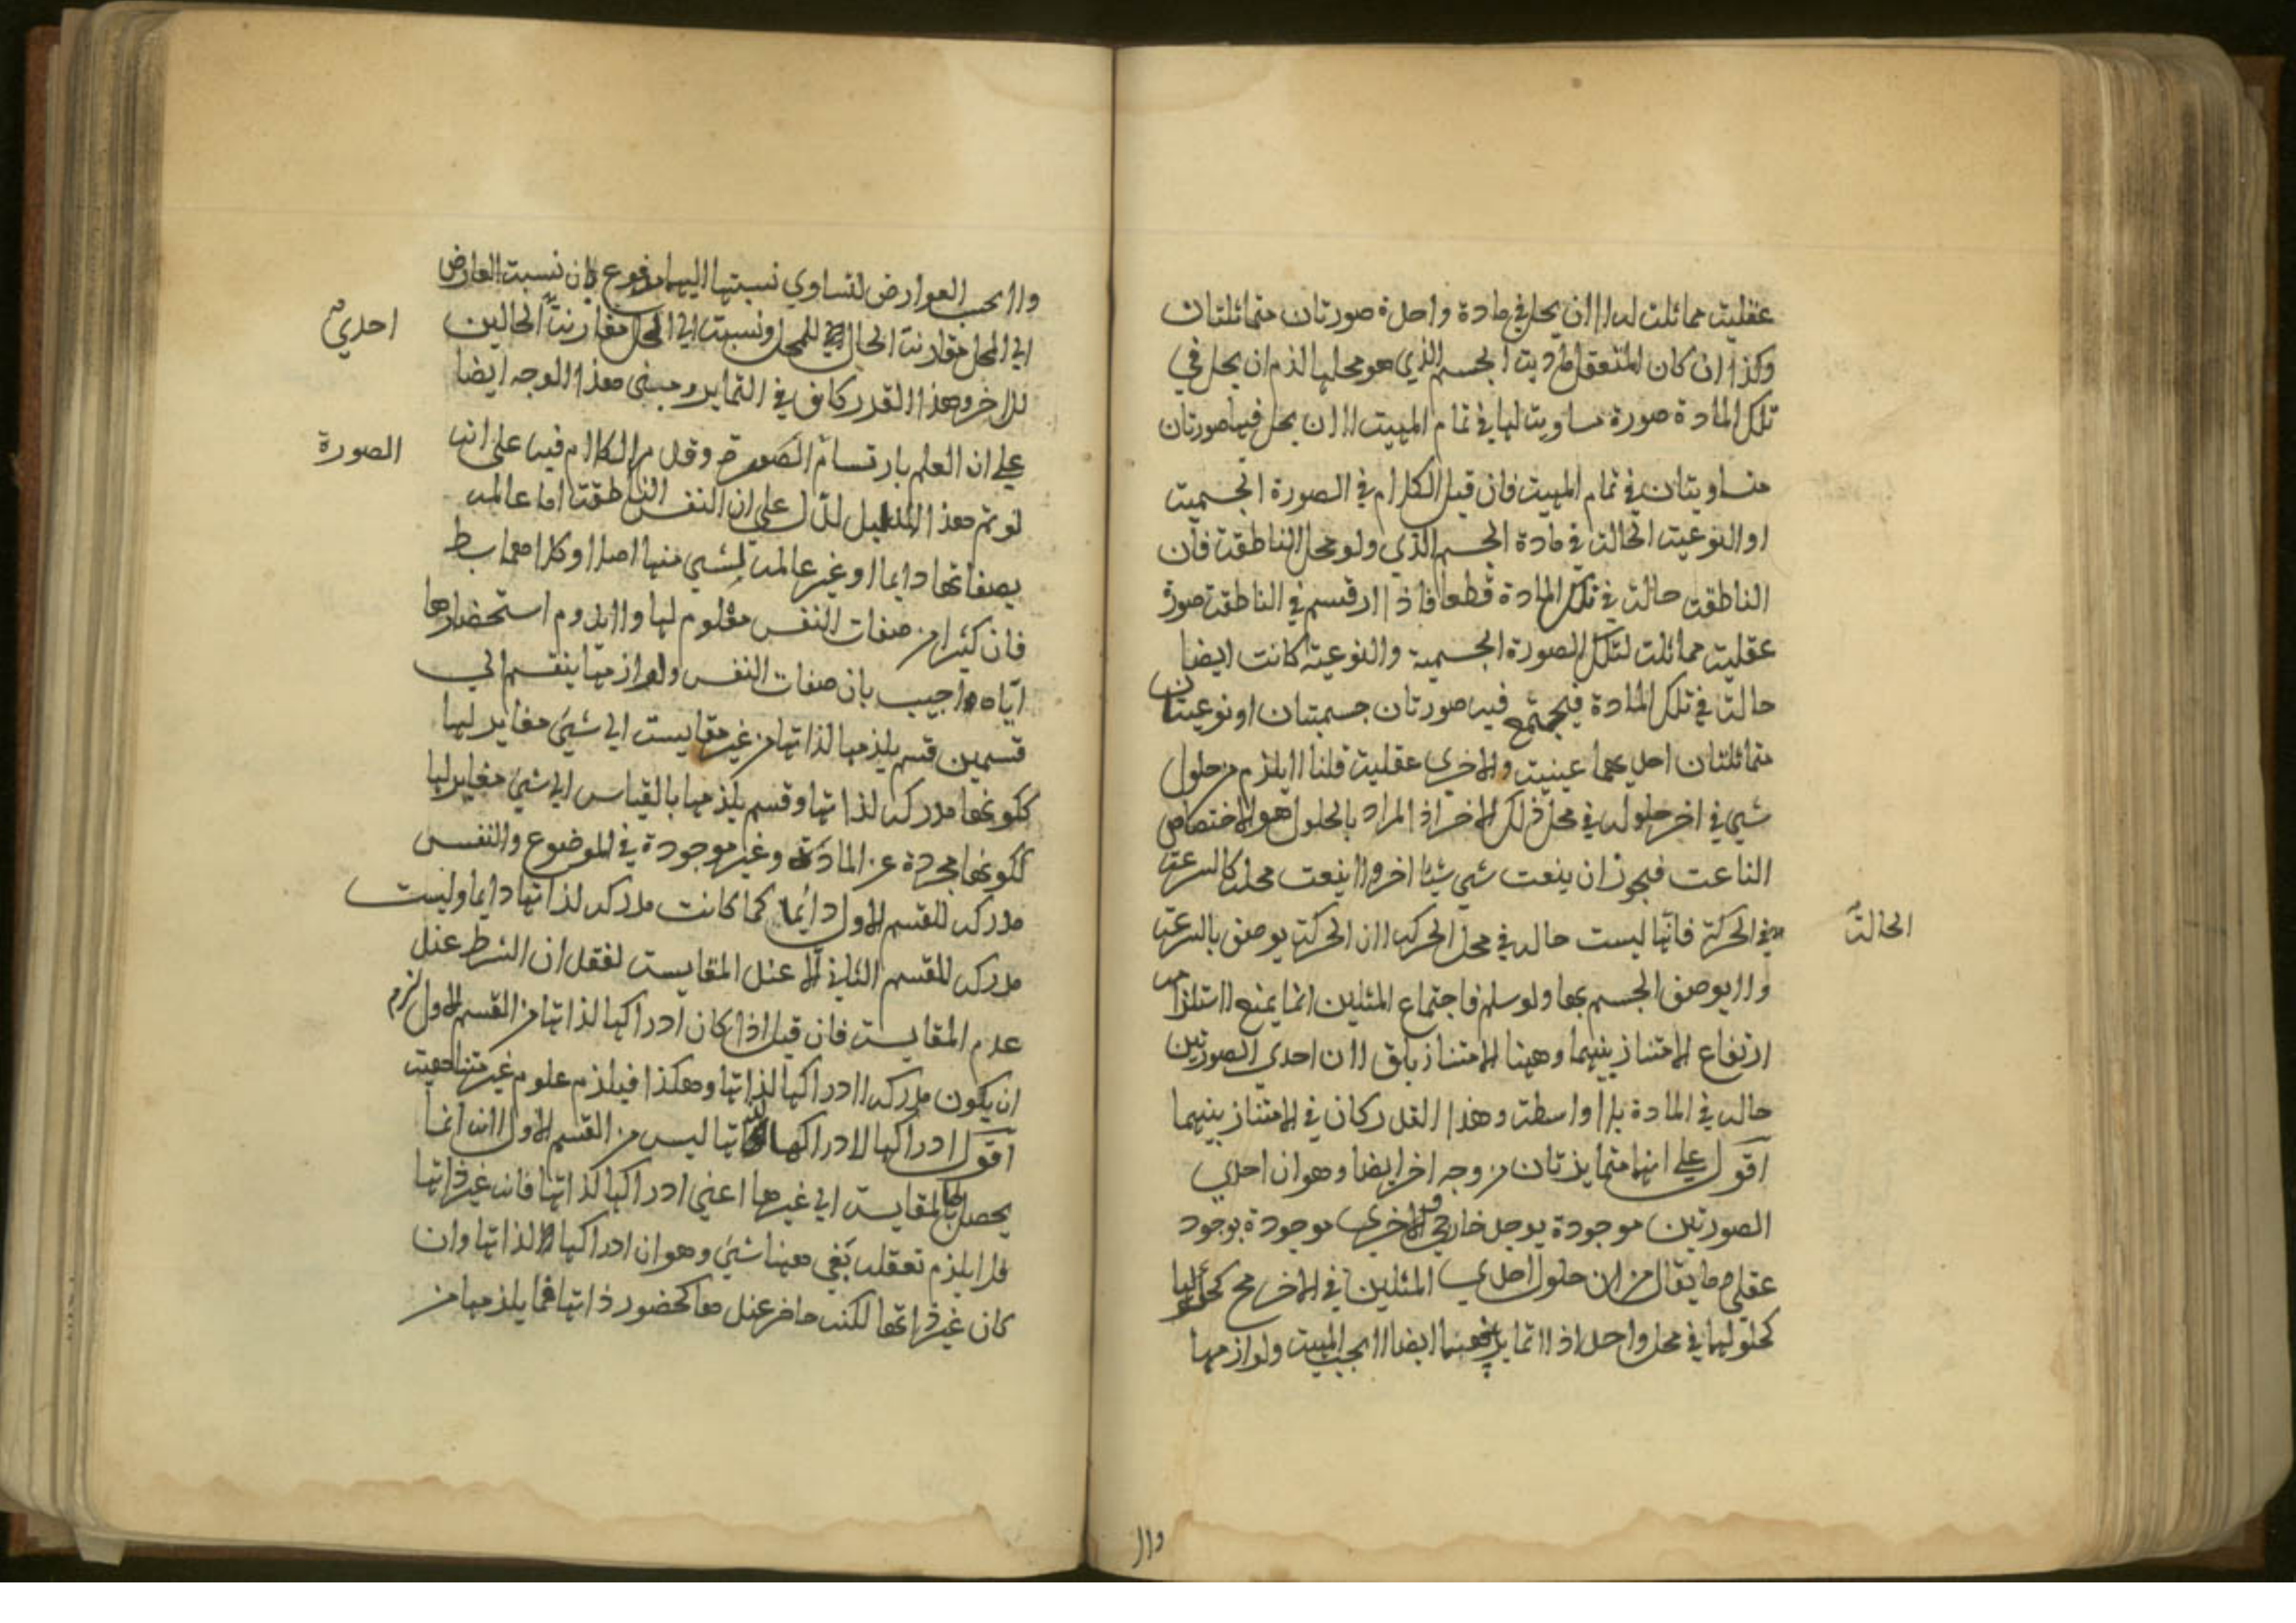 عقلية مماثلة له لا ان يحل في مادة واحدة صورتان متماثلتان
وكذا ان كان المتعقل مادية الجسم الذي هو محلها لزم ان يحل في
تلك المادة صورة مساوية لها في تمام المهية لا ان يحل فيها صورتان
متساويتان في تمام المهية فان قيل الكلام في الصورة الجسمية
او النوعية الحالة في مادة الجسم الذي ولو محل الناطقة فان
الناطقة حالة في تلك المادة قطعا فاذا ارتسم في الناطقة صورة
عقلية مماثلة لتلك الصورة الجسمية والنوعية كانت ايضا
حالة في تلك المادة فيجتمع فيه صورتان جسميتان او نوعيتان
متماثلتان احديهما عينية والاخرى عقلية قلنا لا يلزم من حلول
شيء في اخر حلوله في محل ذلك الاخر اذ المراد بالحلول هو الاختصاص
الناعت فيجوز ان ينعت شيء شيئا اخر ولا ينعت محله كالسرعة
الحالة
في الحركة فانها ليست حاله في محل الحركه لان الحركة يوصف بالسرعة
ولا يوصف الجسم بها ولو سلم فاجتماع المثلين انما يمنع لاستلزامه
ارتفاع الامتياز بينهما وهنا الامتياز باق لان احدى الصورتين
حاله في المادة بلا واسطة وهذا القدر كان في الامتياز بينهما
اقول على انهما متمايزتان من وجه اخر ايضا وهو ان احدي
الصورتين موجودة بوجد خارجي والاخرى موجودة بوجود
عقلي وما يقال من ان حلول احدي المثلين في الاخر مح
كحلولهما في محل واحد اذ لا تمايز بينهما ايضا لا بحسب المهية ولوازمها
ولا
ولا بحسب العوارض لتساوي نسبتها اليهما مدفوع بان نسبت العارض
احدي
الي المحل مقارنة الحال للمحل ونسبت الي المحل مقارنة الحالين
للاخر وهذا القدر كاف في التمايز ومبنى هذا الوجه ايضا
الصورة
علي ان العلم بارتسام الصورة وقد مر الكلام فيه على انه
لو تم هذا الدليل لدل علي ان النفس الناطقة اما عالمه
بصفاتها دايما او غير عالمه لشيء منها اصلا وكلاهما بط
فان كثيرا من صفات النفس معلوم لها ولا يدوم استحضارها
اياه واجيب بان صفات النفس ولوازمها ينقسم الي
قسمين قسم يلزمها لذاتها من غير مقايست الي شيء مغاير لها
ككونها مدركه لذاتها وقسم يلزمها بالقياس الي شيء مغاير لها
ككونها مجردة عن المادة وغير موجودة في الموضوع والنفس
مدركه للقسم الاول دائما كما كانت مدركه لذاتها دايما وليست
مدركه للقسم الثاني الا عند المقايست لفقدان الشرط عند
عدم المقايست فان قيل اذا كان ادراكها لذاتها من القسم الاول لزم
ان يكون مدركه لادراكها لذاتها وهكذا فيلزم علوم غير متناهية
اقول ادراكها لادراكها لذاتها ليس من القسم الاول لانه انما
يحصل بالمقايست الي غيرها اعني ادراكها لذاتها فانه غير ذاتها
فلا يلزم تعقله بقي هنا شيء وهو ان ادراكها لذاتها وان
كان غير ذاتها لكنه حاضر عندها كحضور ذاتها فما يلزمها من